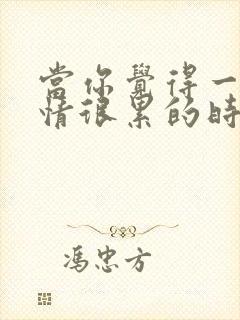 當你覺得一
情很累的時
馮忠方